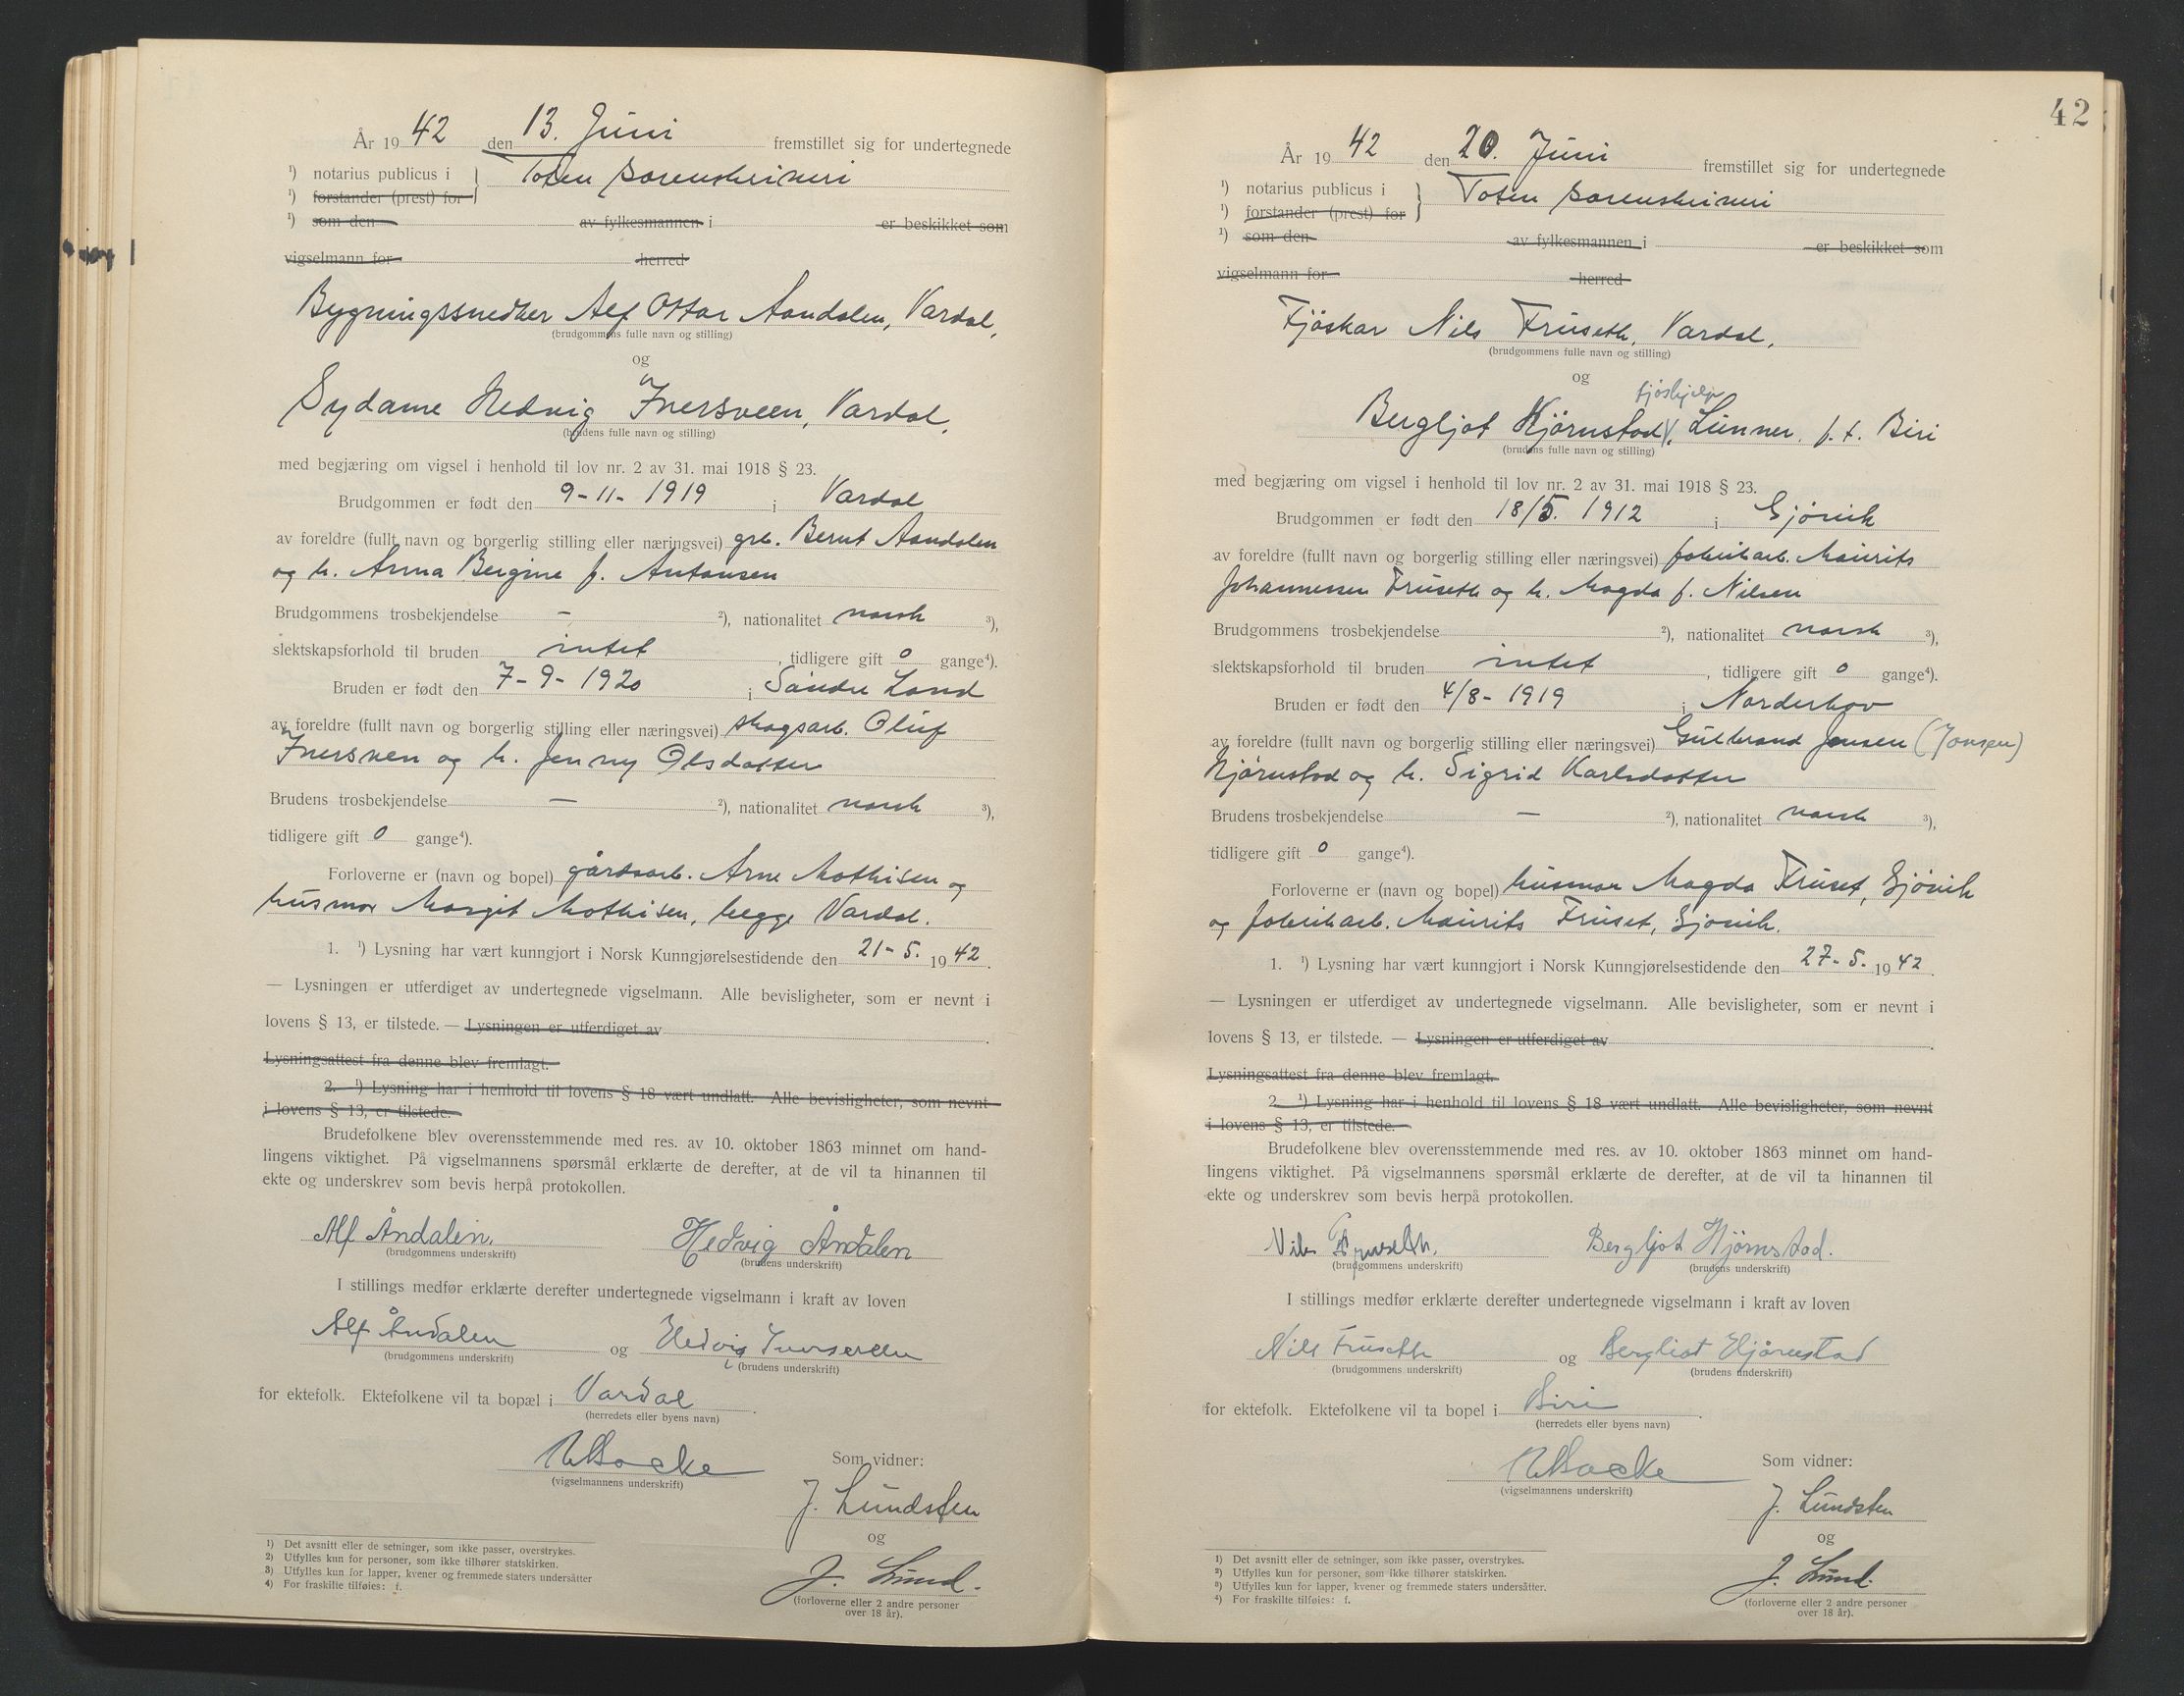 År 19 42 den 13. Juni fremstillet sig for undertegnede
¹) notarius publicus i } Toten sorenskriveri
¹) forstander (prest) for
¹) som den av fylkesmannen i er beskikket som
vigselmann for herred
Bygningssnedker Alf Ottar Aandalen, Vardal,
(brudgommens fulle navn og stilling)
og
Sydame Hedvig Iversveen, Vardal,
(brudens fulle navn og stilling)
med begjæring om vigsel i henhold til lov nr. 2 av 31. mai 1918 § 23.
Brudgommen er født den 9-11-1919 i Vardal
av foreldre (fullt navn og borgerlig stilling eller næringsvei) grb. Bernt Aandalen
og h. Anna Bergine f. Antonsen
Brudgommens trosbekjendelse — ²), nationalitet norsk ³),
slektskapsforhold til bruden intet, tidligere gift 0 gange⁴).
Bruden er født den 7-9-1920 i Søndre Land
av foreldre (fullt navn og borgerlig stilling eller næringsvei) skogsarb. Oluf
Iversveen og h. Jenny Olsdatter
Brudens trosbekjendelse — ²), nationalitet norsk ³),
tidligere gift 0 gange⁴).
Forloverne er (navn og bopel) gårdsarb. Arne Mathisen og
husmor Margit Mathisen, begge Vardal.
1. ¹) Lysning har vært kunngjort i Norsk Kunngjørelsestidende den 21-5. 19 42.
— Lysningen er utferdiget av undertegnede vigselmann. Alle bevisligheter, som er nevnt i
lovens § 13, er tilstede. — Lysningen er utferdiget av
Lysningsattest fra denne blev fremlagt.
2. ¹) Lysning har i henhold til lovens § 18 vært undlatt. Alle bevisligheter, som nevnt
i lovens § 13, er tilstede.
Brudefolkene blev overensstemmende med res. av 10. oktober 1863 minnet om hand-
lingens viktighet. På vigselmannens spørsmål erklærte de derefter, at de vil ta hinannen til
ekte og underskrev som bevis herpå protokollen.
Alf Åndalen. Hedvig Åndalen
(brudgommens underskrift) (brudens underskrift)
I stillings medfør erklærte derefter undertegnede vigselmann i kraft av loven
Alf Åndalen og Hedvig Iversveen
(brudgommens underskrift) (brudens underskrift)
for ektefolk. Ektefolkene vil ta bopæl i Vardal.
(herredets eller byens navn)
(vigselmannens underskrift)
Som vidner:
J. Lundsten
og
J. Lund.
(forloverne eller 2 andre personer
over 18 år).
¹) Det avsnitt eller de setninger, som ikke passer, overstrykes.
²) Utfylles kun for personer, som ikke tilhører statskirken.
³) Utfylles kun for lapper, kvener og fremmede staters undersåtter
⁴) For fraskilte tilføies: f.
42
År 19 42 den 20. Juni fremstillet sig for undertegnede
¹) notarius publicus i } Toten sorenskriveri
¹) forstander (prest) for
¹) som den av fylkesmannen i er beskikket som
vigselmann for herred
Fjøskar Nils Fruseth, Vardal,
(brudgommens fulle navn og stilling)
og
fjøshjelp
Bergljot Hjørnstad, Lunner. f. t. Biri
(brudens fulle navn og stilling)
med begjæring om vigsel i henhold til lov nr. 2 av 31. mai 1918 § 23.
Brudgommen er født den 18/5. 1912 i Gjøvik
av foreldre (fullt navn og borgerlig stilling eller næringsvei) fabrikarb. Maurits
Johannessen Fruseth og h. Magda f. Nilsen
Brudgommens trosbekjendelse ²), nationalitet norsk ³),
slektskapsforhold til bruden intet, tidligere gift 0 gange⁴).
Bruden er født den 4/8-1919 i Norderhov
av foreldre (fullt navn og borgerlig stilling eller næringsvei) Gulbrand Jensen (Jonsen)
Hjørnstad og h. Sigrid Karlsdatter
Brudens trosbekjendelse — ²), nationalitet norsk ³),
tidligere gift 0 gange⁴).
Forloverne er (navn og bopel) husmor Magda Fruset, Gjøvik
og fabrikarb. Maurits Fruset, Gjøvik.
1. ¹) Lysning har vært kunngjort i Norsk Kunngjørelsestidende den 27-5. 19 42.
— Lysningen er utferdiget av undertegnede vigselmann. Alle bevisligheter, som er nevnt i
lovens § 13, er tilstede. — Lysningen er utferdiget av
Lysningsattest fra denne blev fremlagt.
2. ¹) Lysning har i henhold til lovens § 18 vært undlatt. Alle bevisligheter, som nevnt
i lovens § 13, er tilstede.
Brudefolkene blev overensstemmende med res. av 10. oktober 1863 minnet om hand-
lingens viktighet. På vigselmannens spørsmål erklærte de derefter, at de vil ta hinannen til
ekte og underskrev som bevis herpå protokollen.
Nils Fruseth. Bergljot Hjørnstad.
(brudgommens underskrift) (brudens underskrift)
I stillings medfør erklærte derefter undertegnede vigselmann i kraft av loven
Nils Fruseth og Bergliot Hjørnstad
(brudgommens underskrift) (brudens underskrift)
for ektefolk. Ektefolkene vil ta bopel i Biri.
(herredets eller byens navn)
(vigselmannens underskrift)
Som vidner:
J. Lundsten
og
J. Lund.
(forloverne eller 2 andre personer
over 18 år).
¹) Det avsnitt eller de setninger, som ikke passer, overstrykes.
²) Utfylles kun for personer, som ikke tilhører statskirken.
³) Utfylles kun for lapper, kvener og fremmede staters undersåtter.
⁴) For fraskilte tilføies: f.